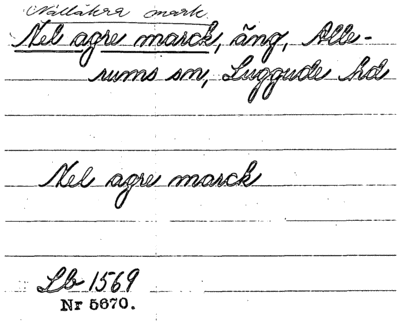 Nällåkra mark.
Nel agre marck, äng, Alle-
rums sn, Luggude hd
Nel agre marck
Lb 1569
Nr 5670.